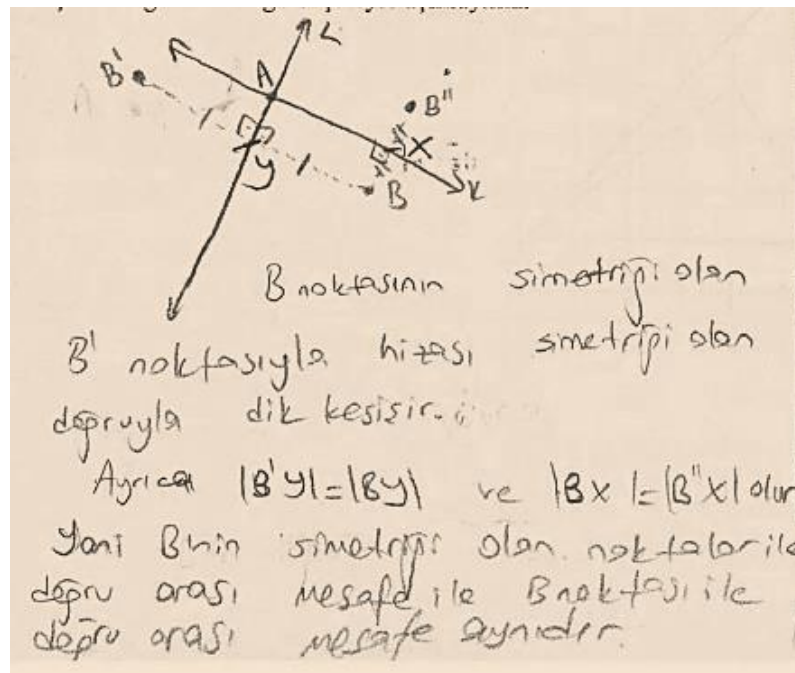 L
B'
A
B"
X
y
B
K
B noktasının simetriği olan
B' noktasıyla hizası simetriği olan
doğruyla dik kesişir.
Ayrıca |B'y|=|By| ve |Bx|=|B"x| olur
Yani B'nin simetriği olan noktalar ile
doğru arası mesafe ile B noktası ile
doğru arası mesafe aynıdır.